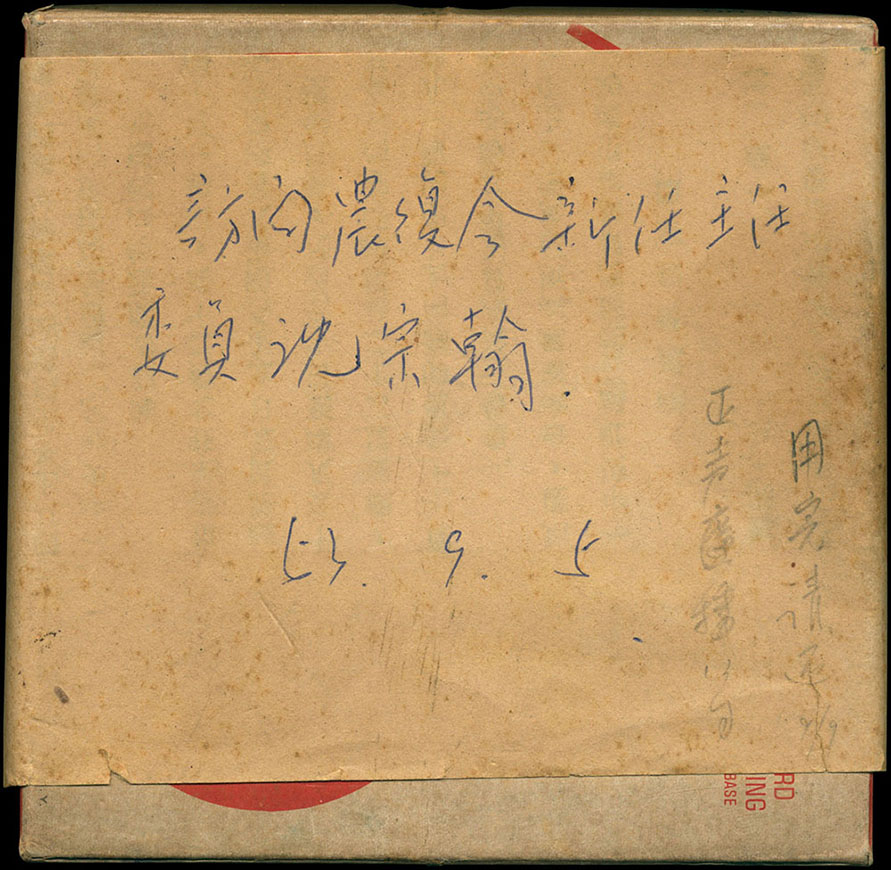 訪問農復会新任主任
委員沈宗翰.
53. 9. 5
用完請還
RD
ING
BASE